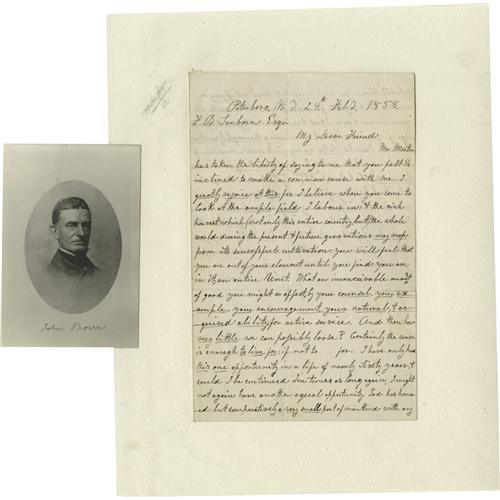 Peterboro, N.Y. 24th Feb. 1858.
F B Sanborn Esqr
My Dear Friend
Mr. Morton
has taken the liberty of saying to me that you felt ½
inclined to make a common cause with me. I
greatly rejoice at this; for I believe when you come to
look at the ample field I labour in: & the rich
harvest which (not only this entire country, but) the whole
world during the present & future generations may reap
from its successful cultivation: you will feel that
you are out of your element until you find you are
in it; an entire Unit. What an inconceivable amount
of good you might so effect; by your counsel, your ex
ample, your encouragement, your natural, & ac
quired ability; for active service. And then how
very little we can possibly loose? Certainly the cause
is enough to live for; if not to for. I have only had
this one opportunity in a life of nearly Sixty years, &
could I be continued Ten times as long again, I might
not again have another equal opportunity. God has honor
ed but comparatively a very small part of mankind with any
John Brown